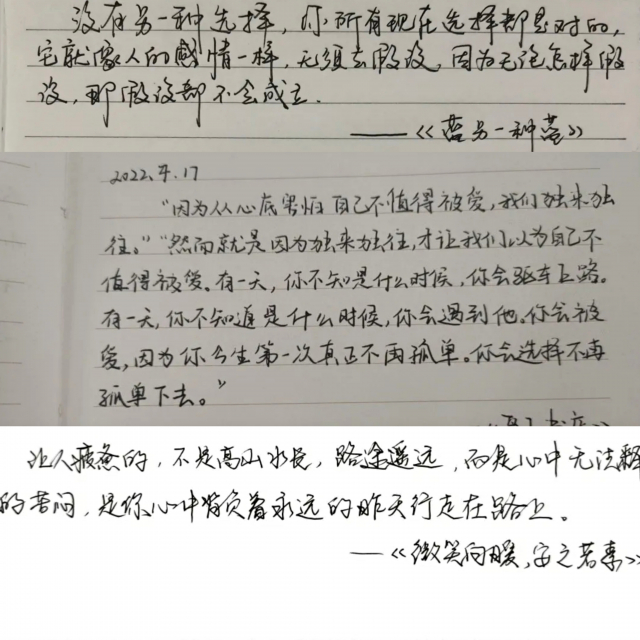 没有另一种选择,你所有现在选择都是对的,
它就像人的感情一样,无须去假设,因为无论怎样假
设,那假设都不会成立.
——《蓝另一种蓝》
2022.4.17
“因为从心底害怕自己不值得被爱,我们独来独
往。”“然而就是因为独来独往,才让我们以为自己不
值得被爱。有一天,你不知是什么时候,你会驱车上路。
有一天,你不知道是什么时候,你会遇到他。你会被
爱,因为你今生第一次真正不再孤单。你会选择不再
孤单下去。”
让人疲惫的,不是高山水长,路途遥远,而是心中无法解
的苦闷,是你心中背负着永远的昨天行走在路上。
—《微笑向暖,安之若素》